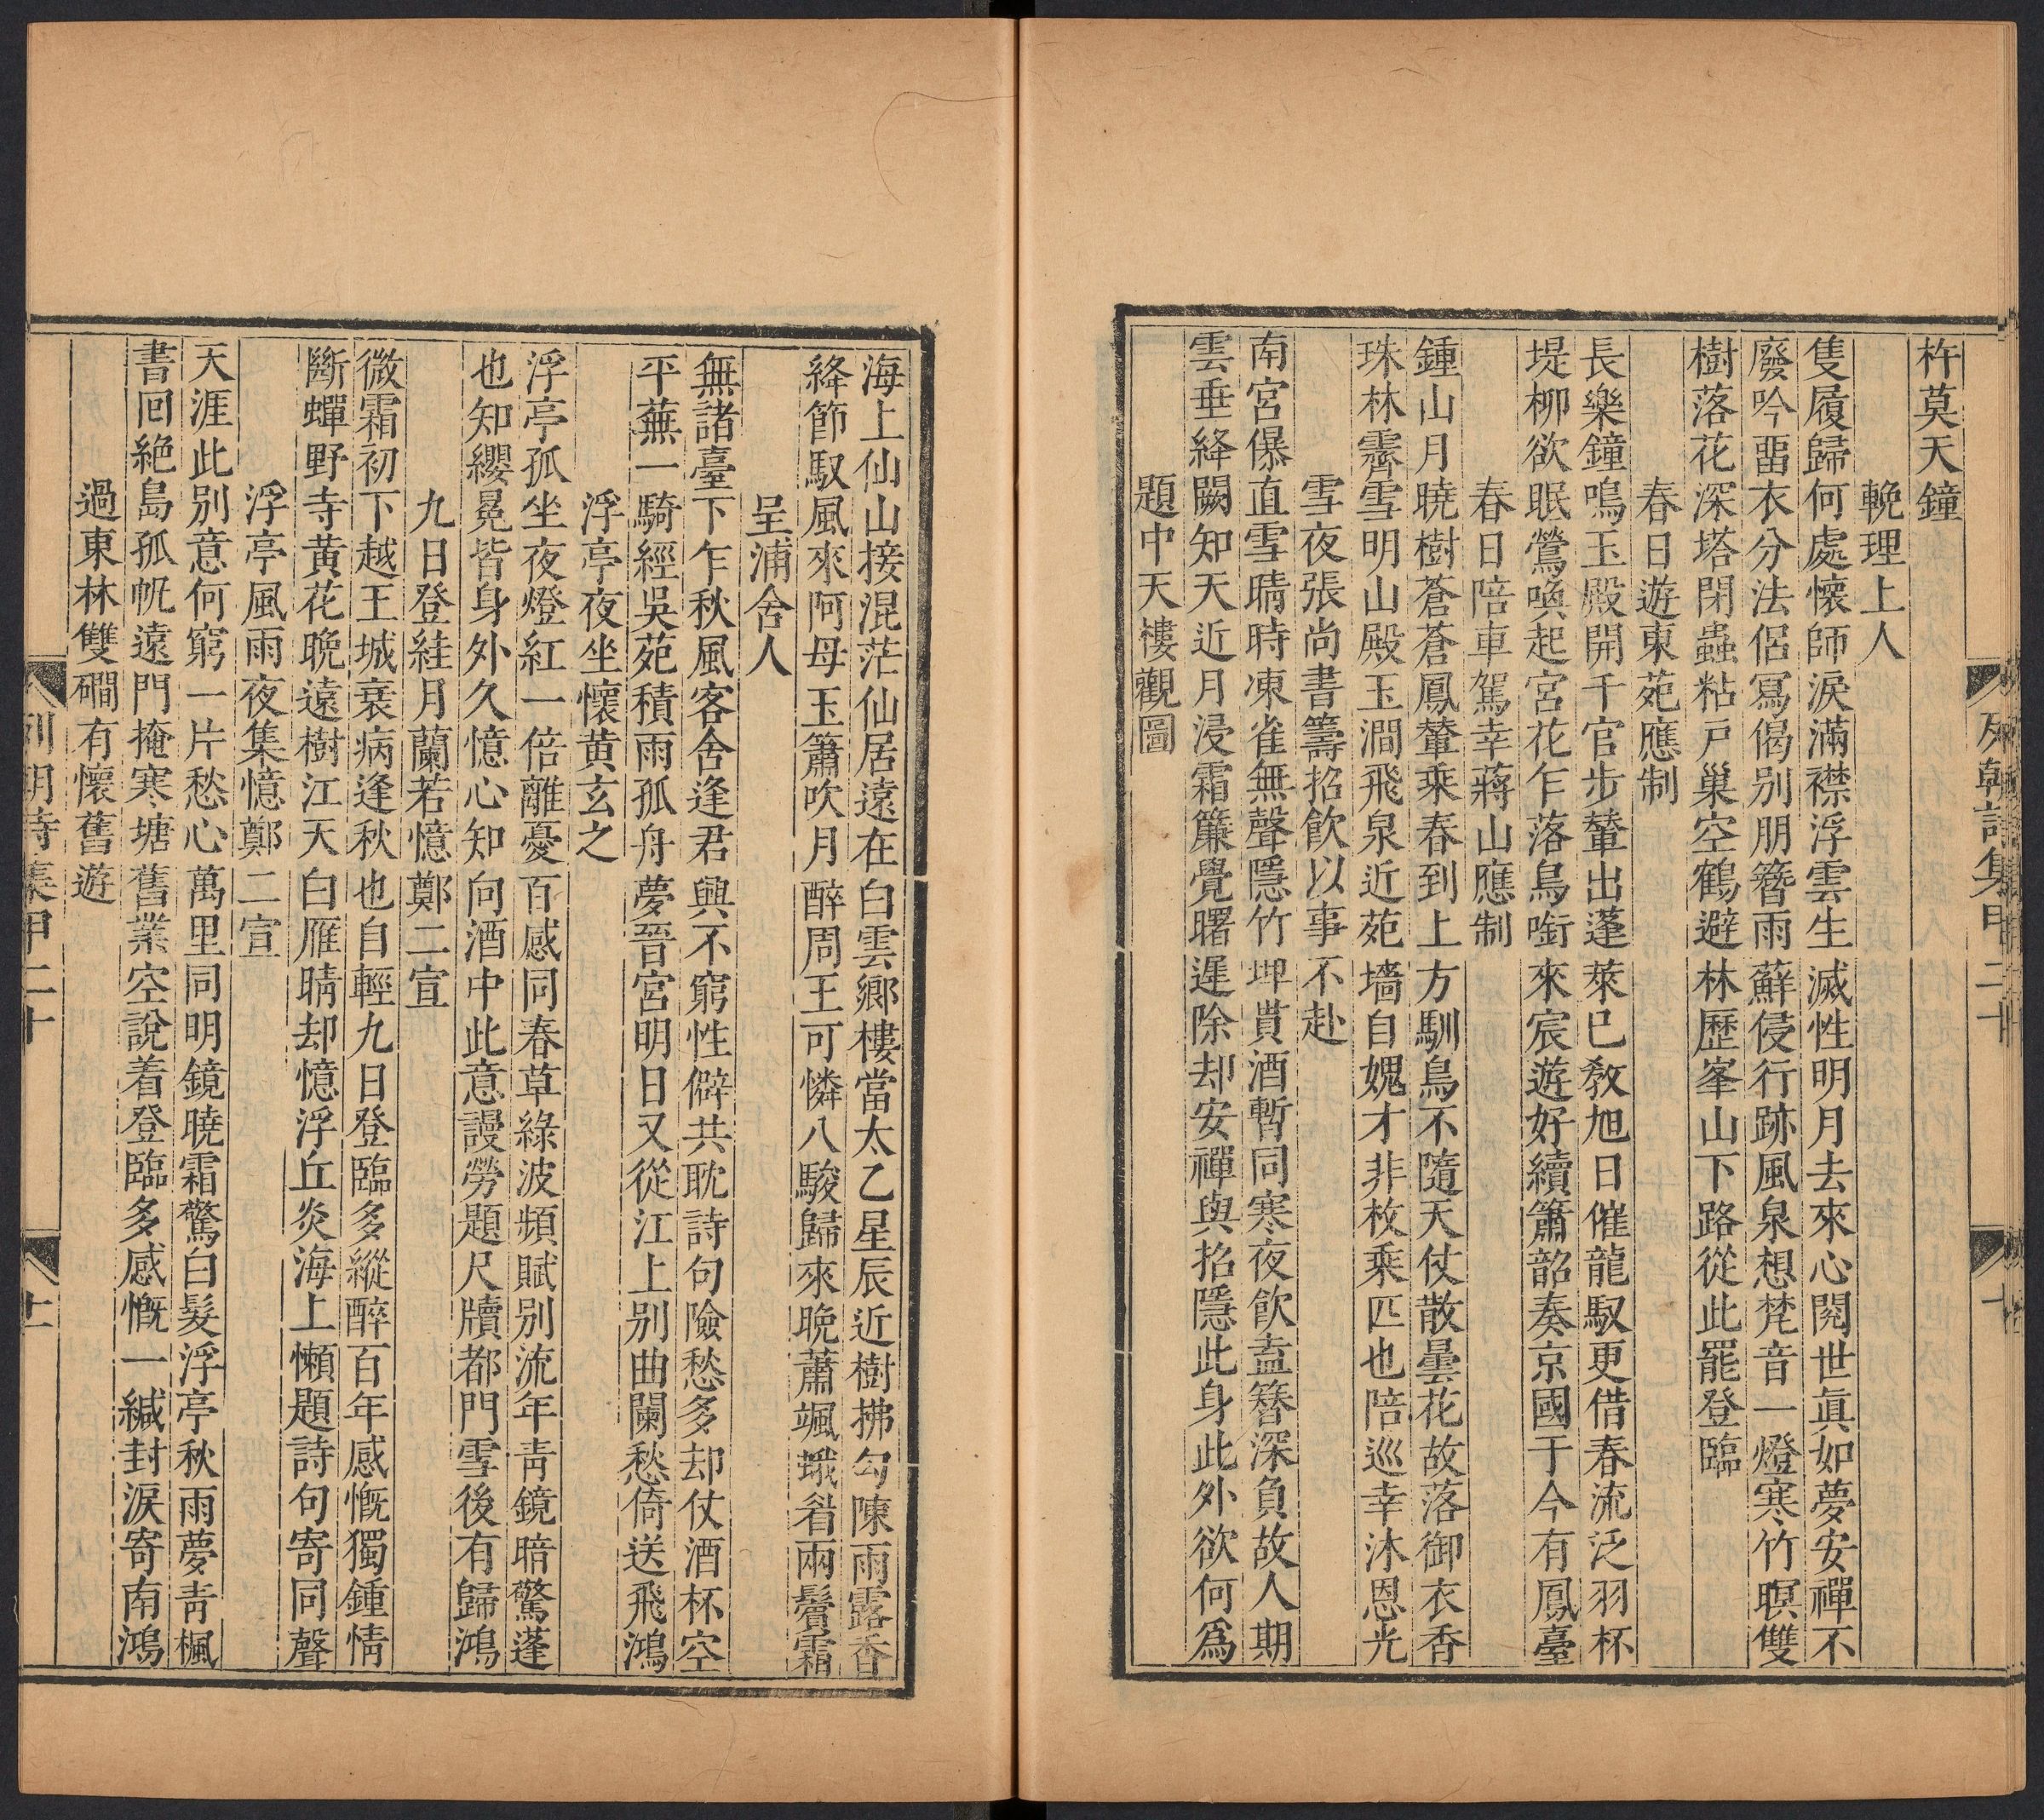 列朝詩集甲二十
杵莫天鐘
輓理上人
隻履歸何處懷師淚滿襟浮雲生滅性明月去來心閱世眞如夢安禪不
廢吟畱衣分法侶冩偈别朋簪雨蘚侵行跡風泉想梵音一燈寒竹暝雙
樹落花深塔閉蟲粘戸巢空鶴避林歷峯山下路從此罷登臨
春日遊東苑應制
長樂鐘鳴玉殿開千官步輦出蓬萊已敎旭日催龍馭更借春流泛羽杯
堤柳欲眠鶯喚起宮花乍落鳥銜來宸遊好續簫韶奏京國于今有鳳臺
春日陪車駕幸蔣山應制
鍾山月曉樹蒼蒼鳳輦乘春到上方馴鳥不隨天仗散曇花故落御衣香
珠林霽雪明山殿玉澗飛泉近苑墻自媿才非枚乘匹也陪巡幸沐恩光
雪夜張尚書籌招飲以事不赴
南宮儤直雪晴時凍雀無聲隱竹埤貰酒暫同寒夜飲盍簪深負故人期
雲垂絳闕知天近月浸霜簾覺曙遲除却安禪與招隱此身此外欲何爲
題中天樓觀圖
海上仙山接混茫仙居遠在白雲鄉樓當太乙星辰近樹拂勾陳雨露香
絳節馭風來阿母玉簫吹月醉周王可憐八駿歸來晚蕭颯蛾眉兩鬢霜
呈浦舍人
無諸臺下乍秋風客舍逢君興不窮性僻共耽詩句險愁多却仗酒杯空
平蕪一騎經吳苑積雨孤舟夢晉宮明日又從江上别曲闌愁倚送飛鴻
浮亭夜坐懷黄玄之
浮亭孤坐夜燈紅一倍離憂百感同春草綠波頻賦别流年靑鏡暗驚蓬
也知纓冕皆身外久憶心知向酒中此意謾勞題尺牘都門雪後有歸鴻
九日登絓月蘭若憶鄭二宣
微霜初下越王城衰病逢秋也自輕九日登臨多縱醉百年感慨獨鍾情
斷蟬野寺黄花晚遠樹江天白雁晴却憶浮丘炎海上懶題詩句寄同聲
浮亭風雨夜集憶鄭二宣
天涯此别意何窮一片愁心萬里同明鏡曉霜驚白髮浮亭秋雨夢靑楓
書回絶島孤帆遠門掩寒塘舊業空說着登臨多感慨一緘封淚寄南鴻
過東林雙磵有懷舊遊
列朝詩集甲二十
十一